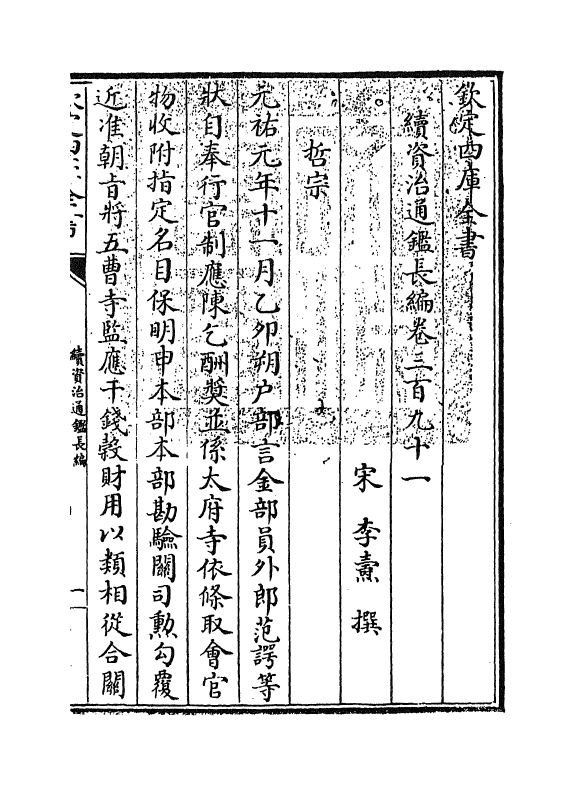 欽定四庫全書
續資治通鑑長編卷三百九十一
宋 李燾 撰
哲宗
元祐元年十一月乙卯朔户部言金部員外郎范諤等
狀自奉行官制應陳乞酬奬並係太府寺依條取會官
物收附指定名目保明申本部本部勘驗關司勲勾覆
近准朝㫖將五曹寺監應干錢穀財用以類相從合關
續資治通鑑長編
一